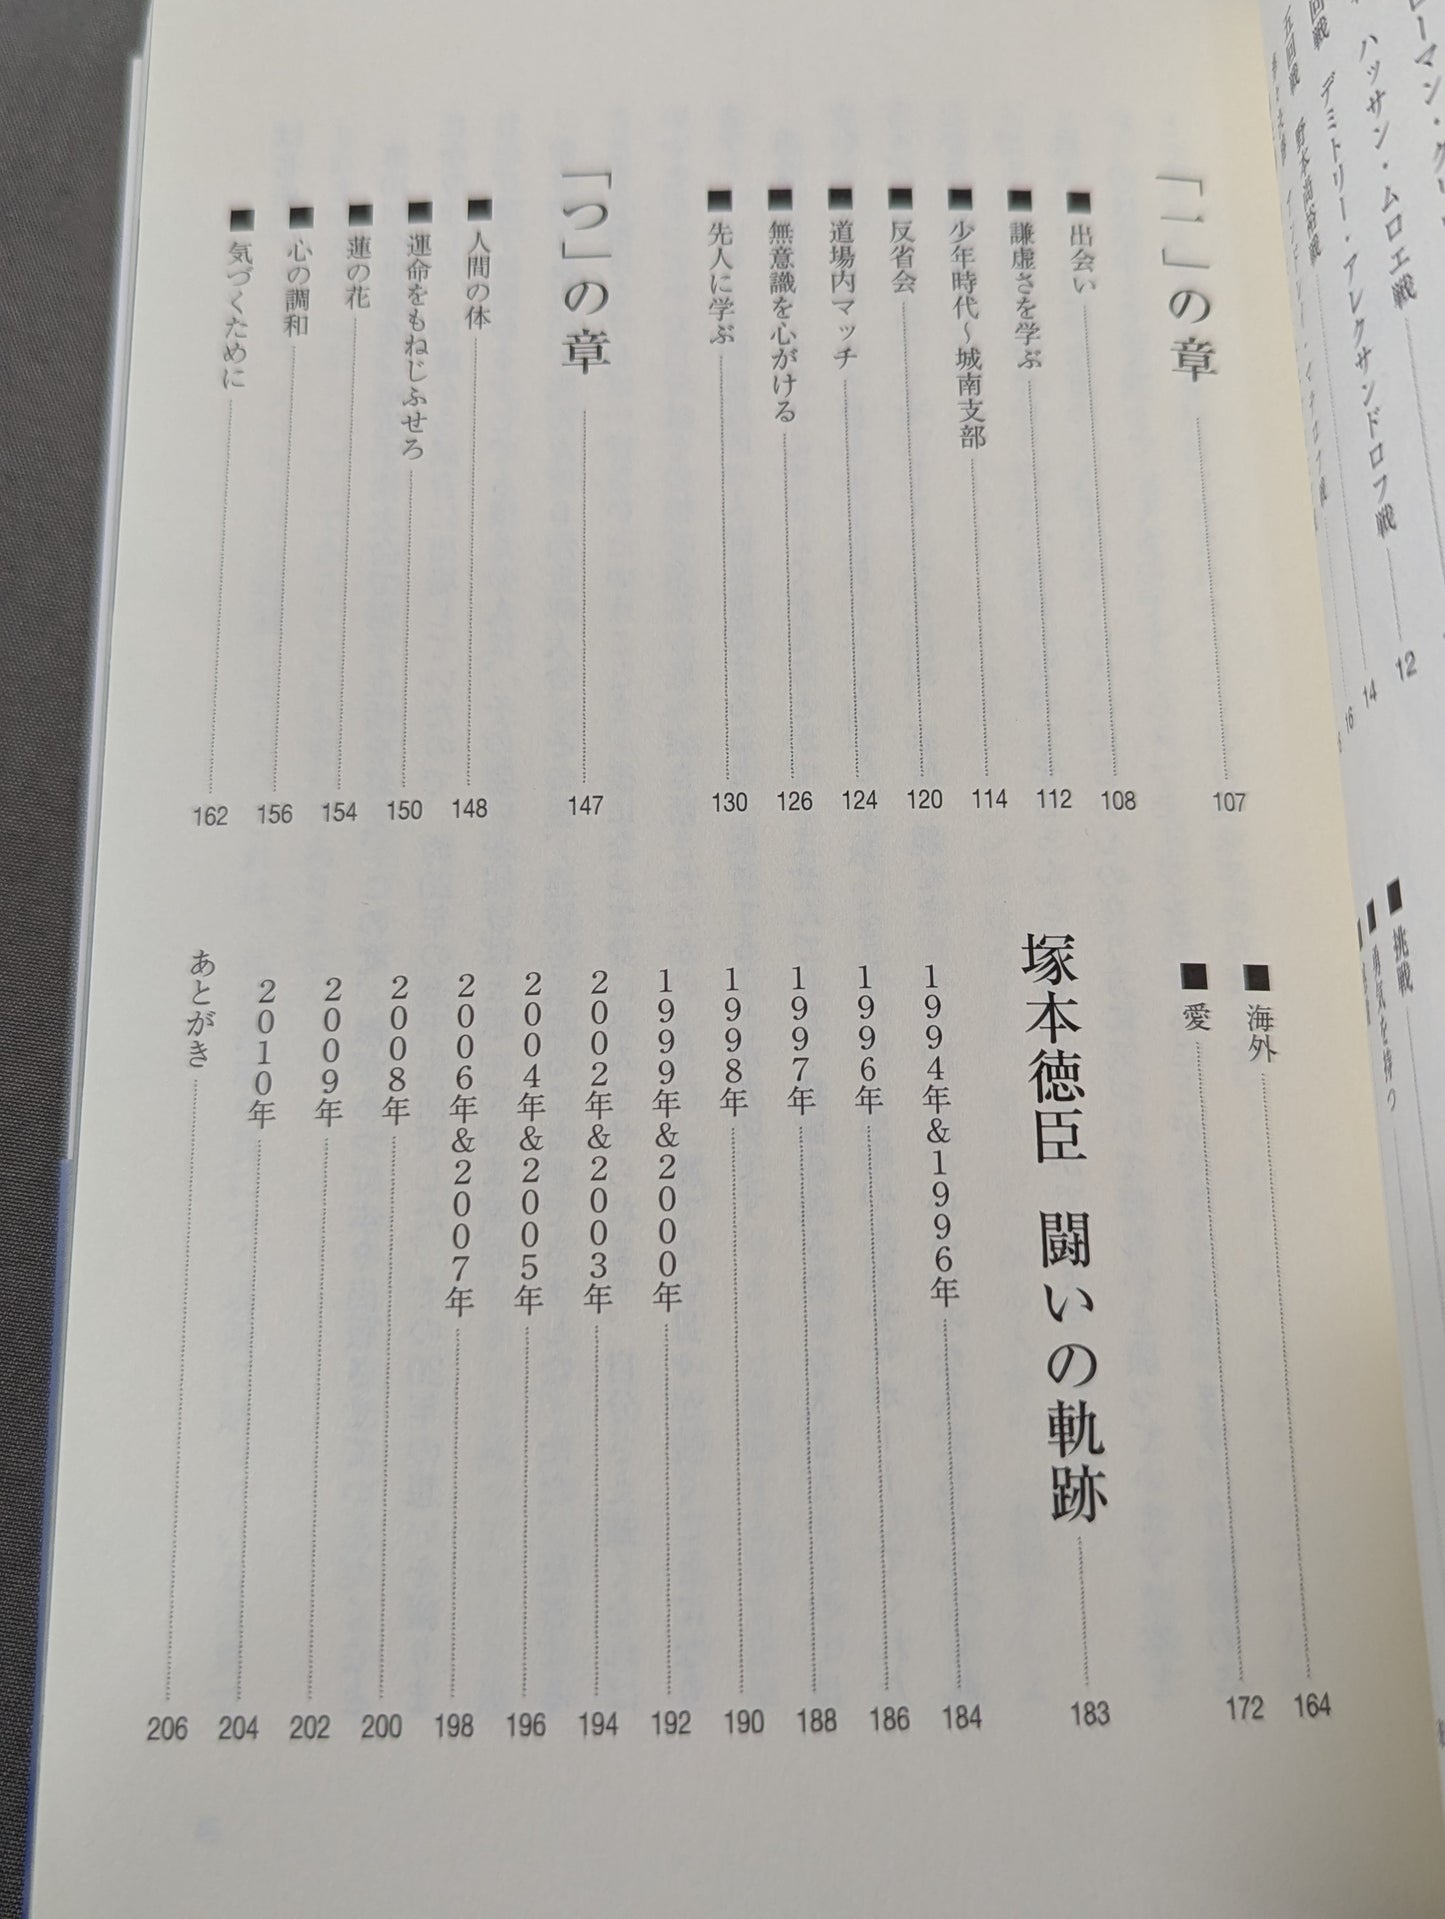 ハッサン・ムロエ戦 12
デミトリー・アレクサンドロフ戦 14
五回戦
16
■挑戦
■勇気を持つ
「一」の章 107
■出会い 108
■謙虚さを学ぶ 112
■少年時代～城南支部 114
■反省会 120
■道場内マッチ 124
■無意識を心がける 126
■先人に学ぶ 130
「つ」の章 147
■人間の体 148
■運命をもねじふせろ 150
■蓮の花 154
■心の調和 156
■気づくために 162
■海外 164
■愛 172
塚本徳臣 闘いの軌跡 183
1994年&1996年 184
1996年 186
1997年 188
1998年 190
1999年&2000年 192
2002年&2003年 194
2004年&2005年 196
2006年&2007年 198
2008年 200
2009年 202
2010年 204
あとがき 206